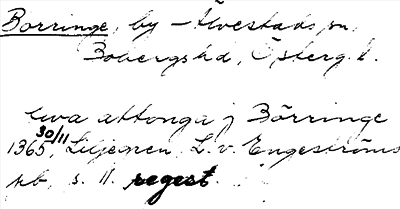 Borringe, by - Alvestads sn,
Bobergs hd, Österg. l.
twa attonga j Börringe
1365 30/11, Liljegren, L. v. Engeströms
sb, s. 11. regest.